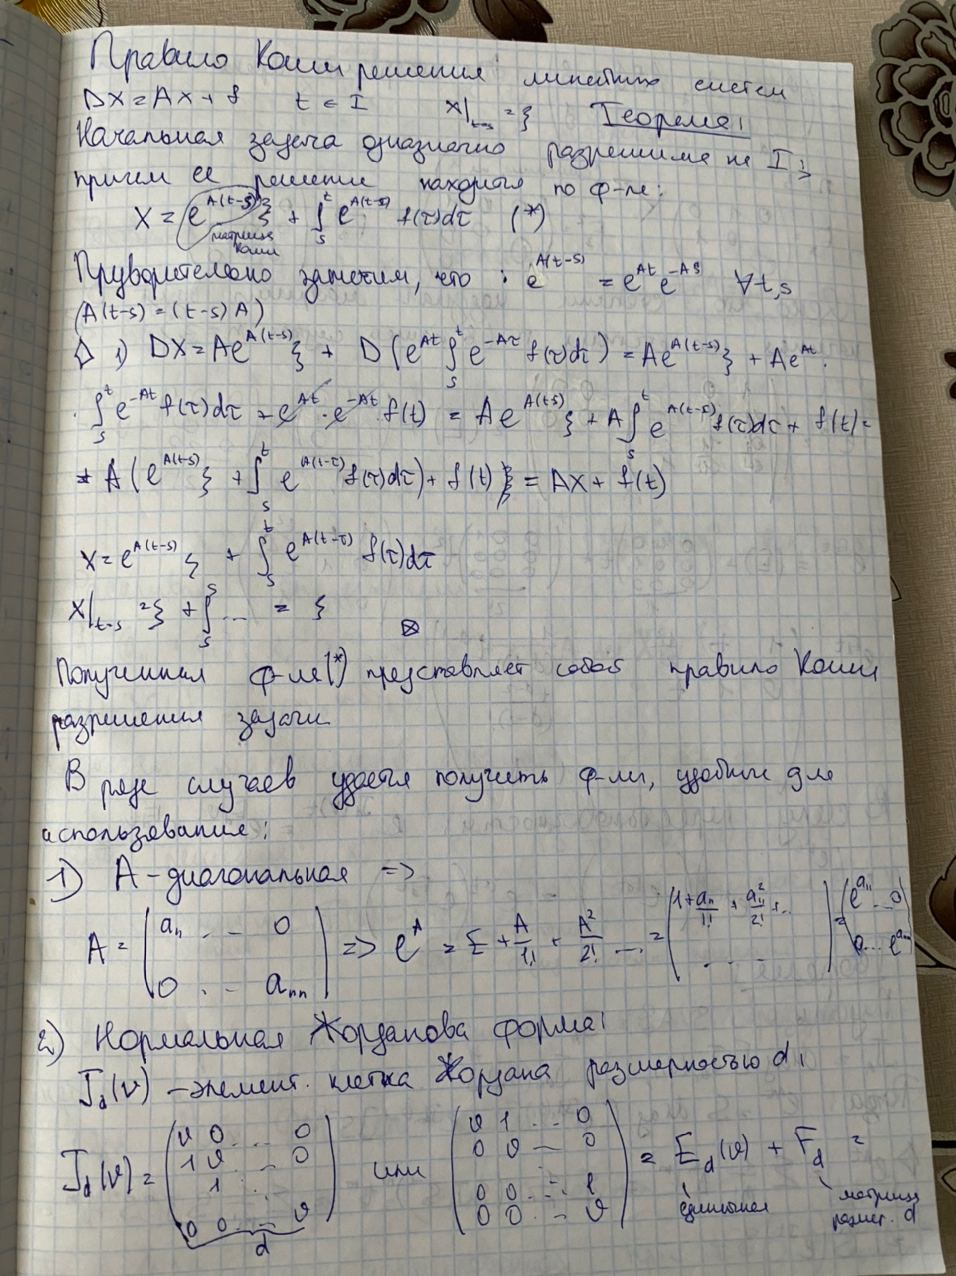 Правило Коши решения линейных систем
DX = AX + f   t ∈ I   X|ₜ₌ₛ = ξ   Теорема:
Начальная задача однозначно разрешима на I,
причем ее решение находится по ф-ле:
X = e^{A(t-s)} ξ + ∫ₛᵗ e^{A(t-s)} f(τ)dτ   (*)
матрица Коши
заметим, что : e^{A(t-s)} = e^{At} e^{-As}   ∀t,s
(A(t-s) = (t-s)A)
1) DX = Ae^{A(t-s)} ξ + D(e^{At} ∫ₛᵗ e^{-Aτ} f(τ)dτ) = Ae^{A(t-s)} ξ + Ae^{At} ·
· ∫ₛᵗ e^{-At} f(τ)dτ + e^{At} · e^{-At} f(t) = Ae^{A(t-s)} ξ + A∫ₛᵗ e^{A(t-s)} f(τ)dτ + f(t) =
= A(e^{A(t-s)} ξ + ∫ₛᵗ e^{A(t-τ)} f(τ)dτ) + f(t) = AX + f(t)
X = e^{A(t-s)} ξ + ∫ₛᵗ e^{A(t-τ)} f(τ)dτ
X|ₜ₌ₛ = ξ + ∫ₛˢ ... = ξ   ⊠
Полученная ф-ла (*) представляет собой правило Коши
разрешения задачи
В ряде случаев удается получить ф-лы, удобные для
использования:
1) A - диагональная =>
A = (a₁₁ ... 0 / 0 ... aₙₙ) => e^A = E + A/1! + A²/2! ... = (1 + a₁₁/1! + a₁₁²/2! + ... / ... ) = (e^{a₁₁} ... 0 / 0 ... e^{aₙₙ})
2) Нормальная Жорданова форма:
J_d(ν) - элемент. клетка Жордана размерностью d,
J_d(ν) = (ν 0 ... 0 / 1 ν ... 0 / 1 ... / 0 0 ... ν) или (ν 1 ... 0 / 0 ν ... 0 / ... / 0 0 ... 1 / 0 0 ... ν) = E_d(ν) + F_d =
d   единичная   матрица размер. d